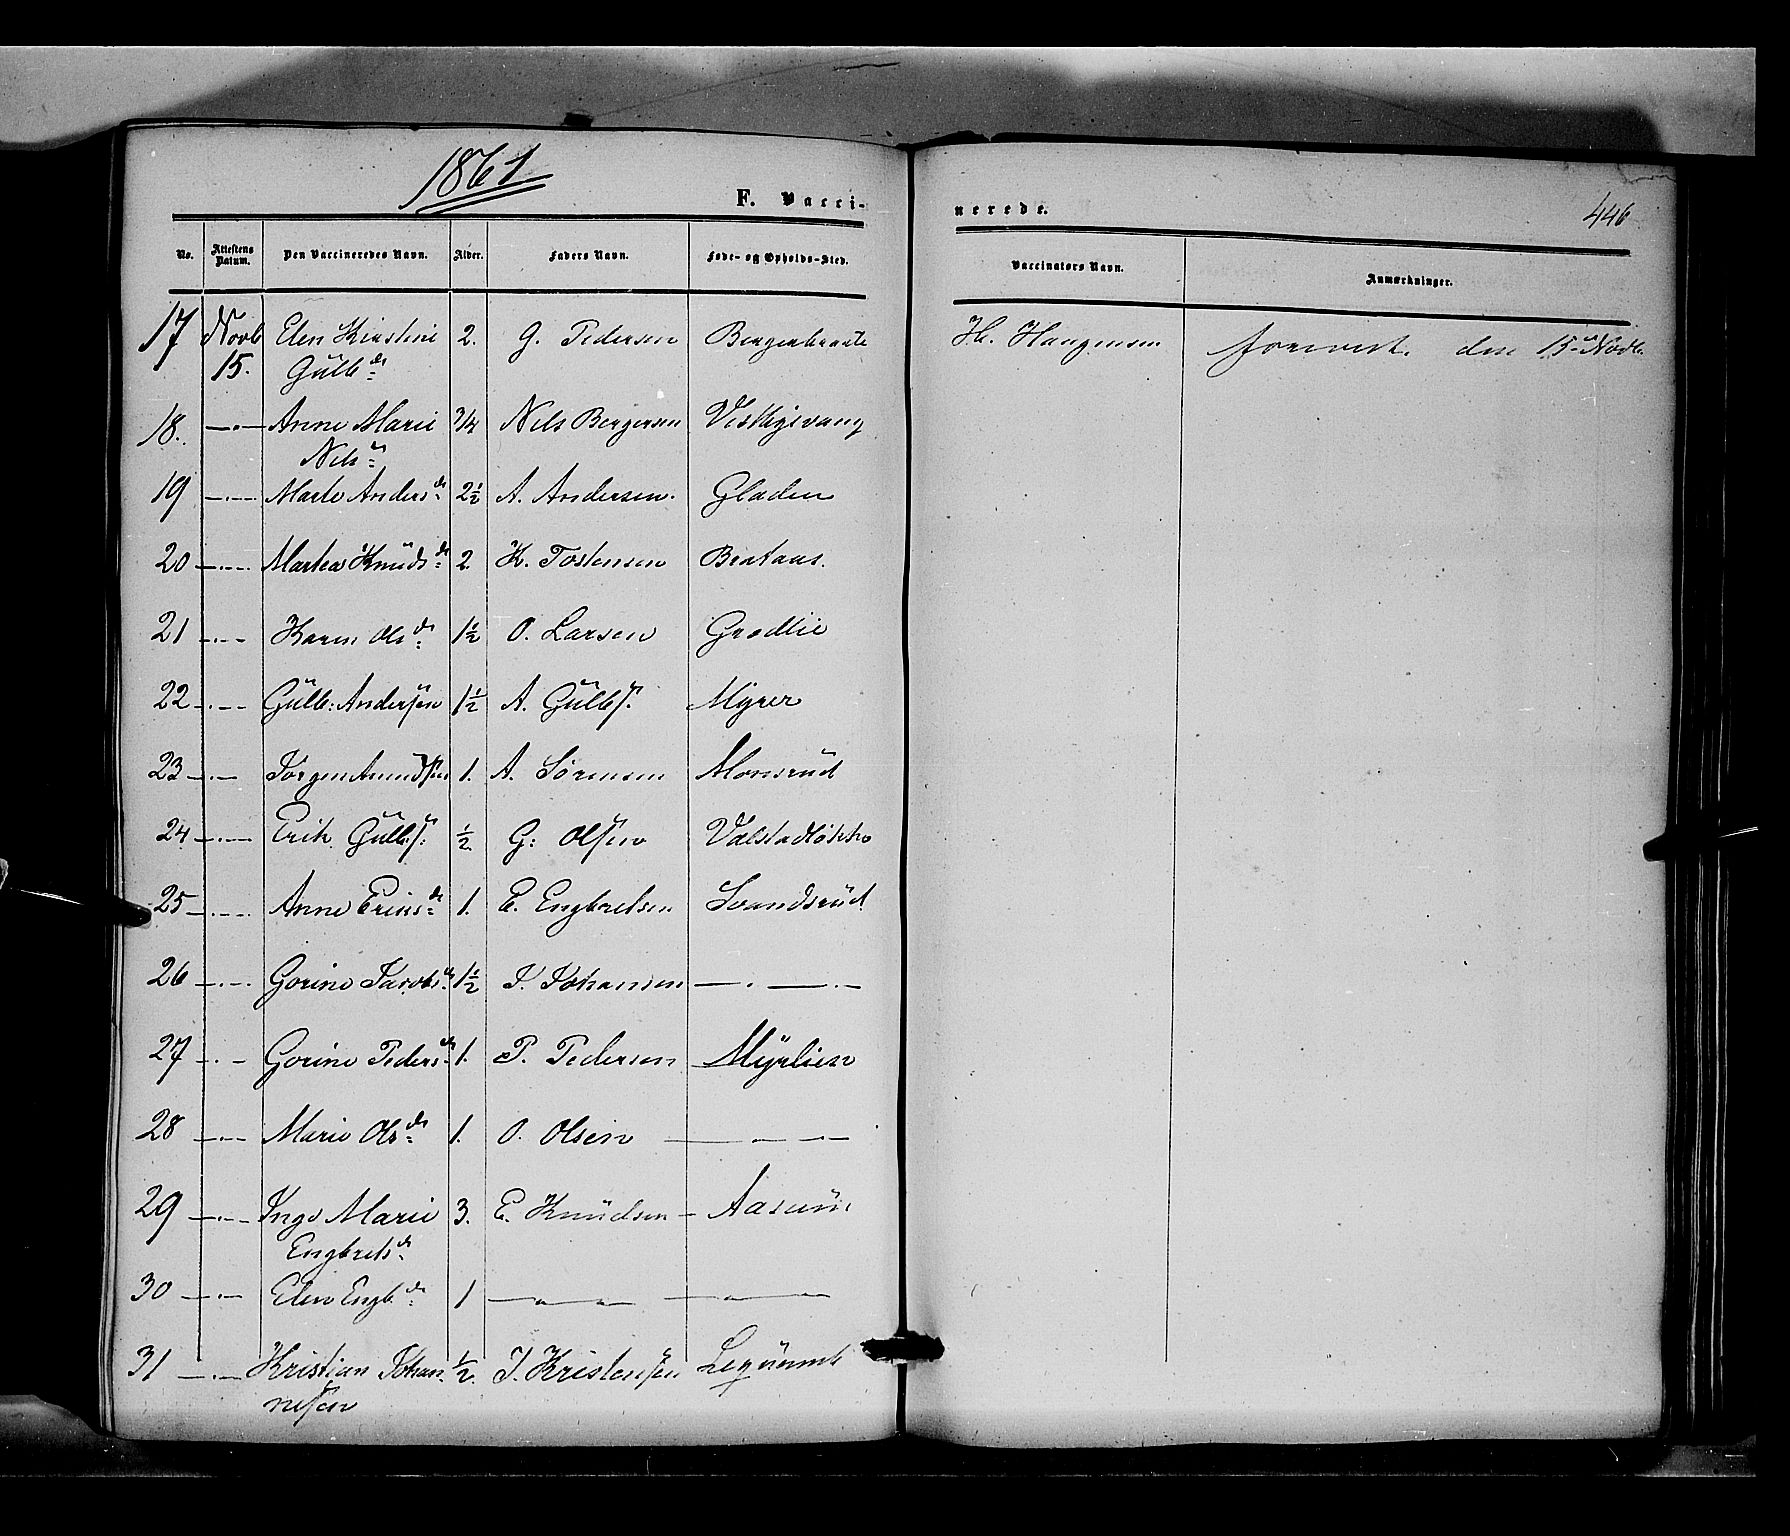 1861
F. Vacci-
nerede.
446
No. Attestens Datum. Den Vaccineredes Navn. Alder. Faders Navn. Føde- og Opholds-Sted. Vaccinators Navn. Anmærkninger.
17 Novb 15. Elen Kirstine 2. G. Pedersen H. Haugensen forevist. den 15de Novb.
Gülb:dr
18. —"— Anne Marie 3/4 Nils Bergersen
Nils:dr
19 —"— Marte Anders:dr 2½ A. Andersen. Gladen
20 —"— Martea Knüds:dr 2. K. Tostensen Brataas.
21 —"— Karen Ols:dr 1½ O. Larsen Grødlie
22 —"— Gülb: Andersen 1½ A. Gülbs. Myrer
23 —"— Jörgen Amundsen 1. A. Sörensen Monsrüd
24 —"— Erik Gülb:s: ½ G: Olsen Valstadløkke
25 —"— Anne Eriks:dr 1. E. Engbretsen Svandsrüd
26 —"— Gorine Jacobs:dr 1½ J. Johansen —"—
27 —"— Gorine Peders:dr 1. P. Pedersen Myrlien
28 —"— Marie Ols:dr 1. O. Olsen —"—
29 —"— Inge Marie 3. E. Knüdsen
Engbrets:dr
30 —"— Elen Engb:dr 1 —"— —"—
31 —"— Kristian Johan- ½. J. Kristensen
nesen